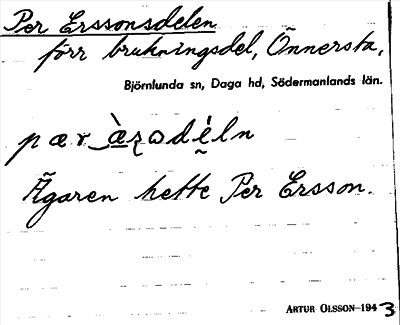 Per Erssonsdelen
förr brukningsdel, Önnersta,
Björnlunda sn, Daga hd, Södermanlands län.
Ägaren hette Per Ersson.
ARTUR OLSSON 1943